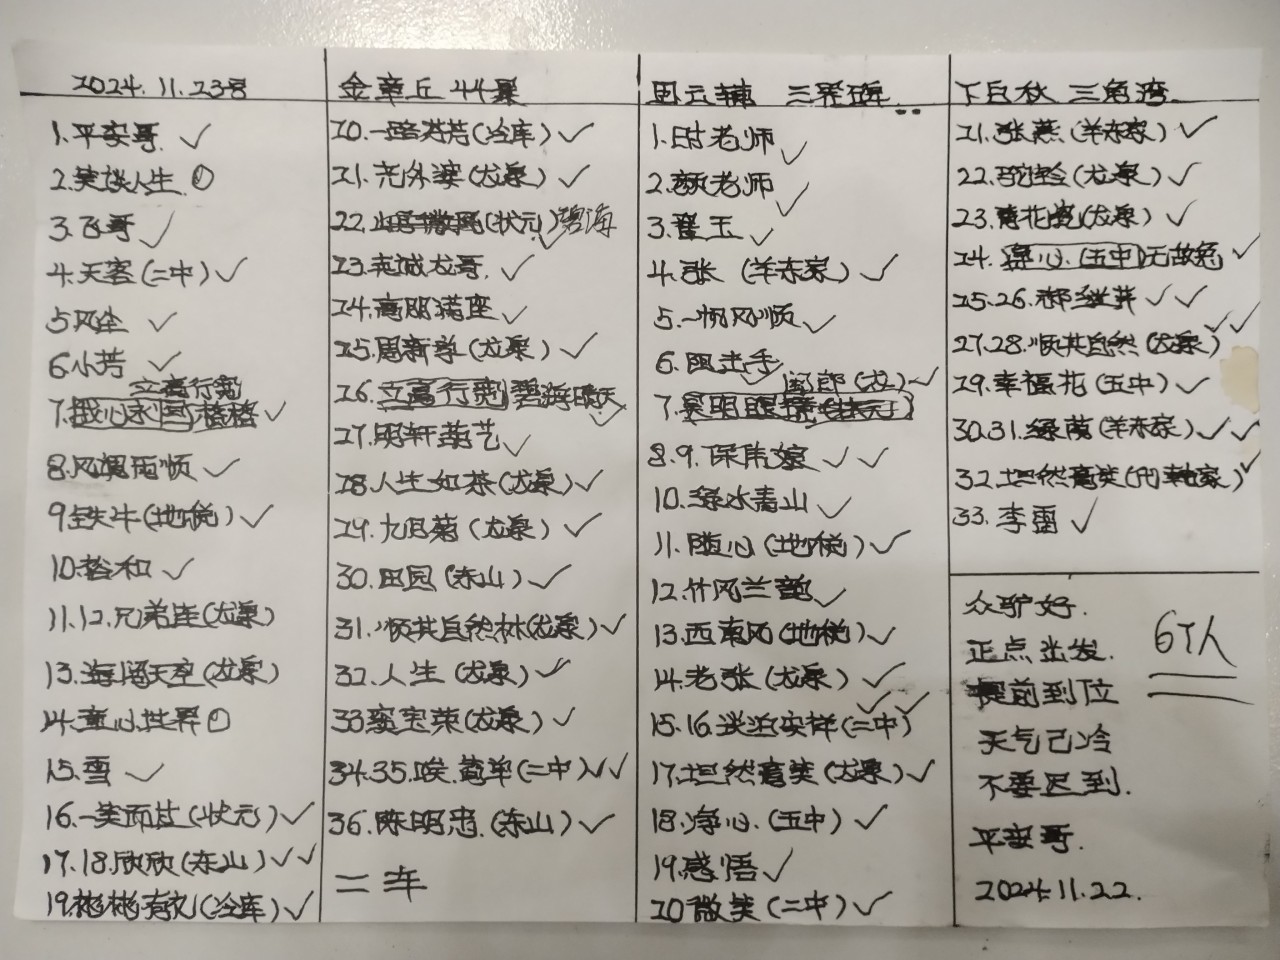 2024.11.23号
1.平安哥 ✓
2.笑谈人生
3.飞哥 ✓
4.天客(二中) ✓
5风尘 ✓
6小芳 ✓
立高行宽
7. 格格 ✓
8.风调雨顺 ✓
9铁牛(地税) ✓
10.裕和 ✓
11.12.兄弟连(龙泉)
13.海阔天空(龙泉)
14.童心世界
15.雪 ✓
16.一笑而过(状元) ✓
17.18.欣欣(东山) ✓✓
19.彬彬有礼(冷库) ✓
金章丘 44景
20.一路芬芳(冷库) ✓
21.老外婆(龙泉) ✓
22. (状元)碧海 ✓
23.英诚龙哥. ✓
24.高朋满座 ✓
25.周新学(龙泉) ✓
26.立高行宽 碧海晴天 ✓
27.明轩菊艺 ✓
28.人生如茶(龙泉) ✓
29.九月菊(龙泉) ✓
30.田园(东山) ✓
31.顺其自然林(龙泉) ✓
32.人生(龙泉) ✓
33 宝荣(龙泉) ✓
34.35.唉.简单(二中) ✓✓
36.陈明忠.(东山) ✓
二车
三界碑
1.时老师 ✓
2.颜老师 ✓
3.翟玉 ✓
4.张 (羊东家) ✓
5.一帆风顺 ✓
6.阻击手 ✓
(龙) ✓
7.
8.9.保伟娘 ✓✓
10.绿水青山 ✓
11.随心(地税) ✓
12.竹风兰韵 ✓
13.西南风(地税) ✓
14.老张(龙泉) ✓
15.16.淡泊安祥(二中) ✓✓
17.坦然喜笑(龙泉) ✓
18.净心.(五中) ✓
19.感悟 ✓
20微笑(二中) ✓
下白秋 三角湾
21.张燕(羊东家) ✓
22. (龙泉) ✓
23. (龙泉) ✓
24.净心.(五中)无故免 ✓
25.26. ✓✓
27.28.顺其自然(龙泉) ✓✓
29.幸福花(五中) ✓
30.31.绿荫(羊东家) ✓✓
32.坦然喜笑 ✓
33.李雷 ✓
众驴好.
正点出发.
提前到位
天气已冷
不要迟到.
平安哥.
2024.11.22.
67人